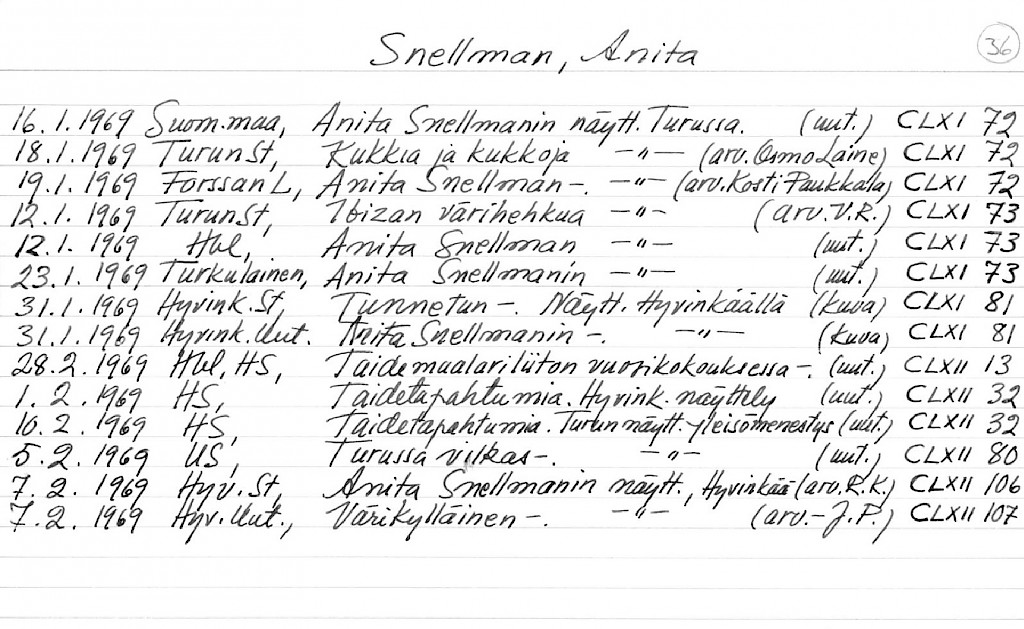 36
Snellman, Anita
16.1.1969 Suom.maa, Anita Snellmanin näytt. Turussa. (uut.) CLXI 72
18.1.1969 TurunSt, Kukkia ja kukkoja —"— (arv. Osmo Laine) CLXI 72
19.1.1969 ForssanL, Anita Snellman-. —"— (arv. Kosti Paukkala) CLXI 72
12.1.1969 TurunSt, Ibizan värihehkua —"— (arv. V.R.) CLXI 73
12.1.1969 Hbl, Anita Snellman —"— (uut.) CLXI 73
23.1.1969 Turkulainen, Anita Snellmanin —"— (uut.) CLXI 73
31.1.1969 Hyvink.St, Tunnetun-. Näytt. Hyvinkäällä (kuva) CLXI 81
31.1.1969 Hyvink.Uut. Anita Snellmanin-. —"— (kuva) CLXI 81
28.2.1969 Hbl, HS, Taidemaalariliiton vuosikokouksessa-. (uut.) CLXII 13
1.2.1969 HS, Taidetapahtumia. Hyvink. näyttely (uut.) CLXII 32
10.2.1969 HS, Taidetapahtumia. Turun näytt. yleisömenestys (uut.) CLXII 32
5.2.1969 US, Turussa vilkas-. —"— (uut.) CLXII 80
7.2.1969 Hyv.St, Anita Snellmanin näytt., Hyvinkää (arv. R.K.) CLXII 106
7.2.1969 Hyv.Uut., Värikylläinen-. —"— (arv.-J.P.) CLXII 107